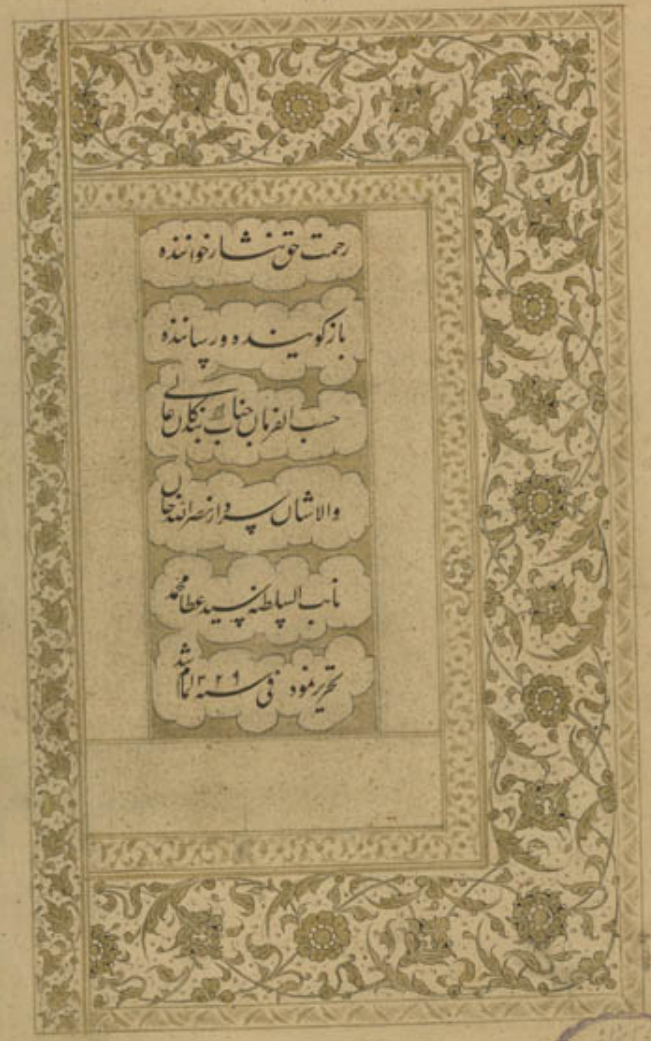 رحمت حق نثار خواننده
باز گوینده و رساننده
حسب الفرمان جناب بندگان عالی
والاشان سردار نصرالله خان
نایب السلطنه سید عطا محمد
تحریر نمود فی سنه ۱۳۲۹ تمام شد